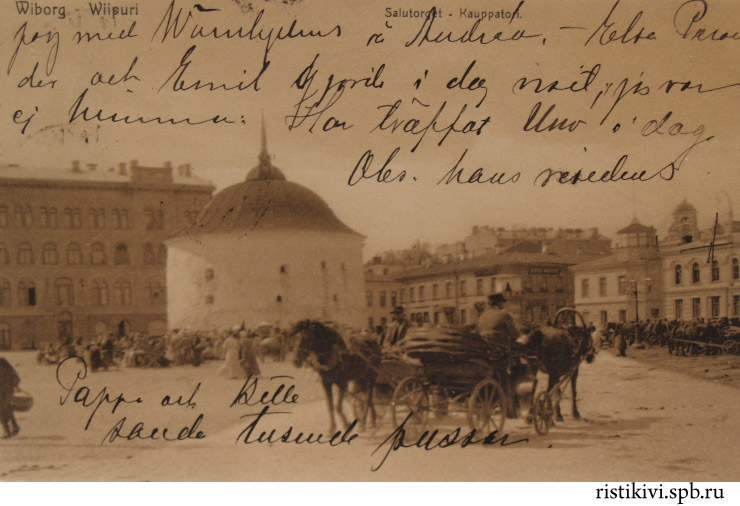 Wiborg - Wiipuri
Salutorget - Kauppatori.
jag med Wärnhjelms à Andrea. - Elsa
der och Emil Gjorde i dag visit, jag var
ej hemma. Har träffat Uno i dag
Obs. hans residens
Pappa och Kette
sände tusende pussar.
ristikivi.spb.ru